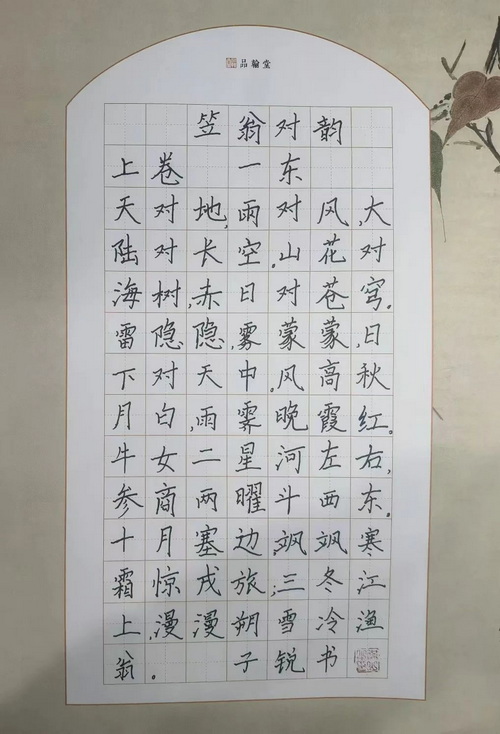 品翰堂
笠翁对韵
上卷 一东
天对地,雨对风,大
陆对长空。山花对
海树,赤日对苍穹。
雷隐隐,雾蒙蒙,日
下对天中。风高秋
月白,雨霁晚霞红。
牛女二星河左右,
参商两曜斗西东。
十月塞边,飒飒寒
霜惊戍旅;三冬江
上,漫漫朔雪冷渔
翁。 子锐书